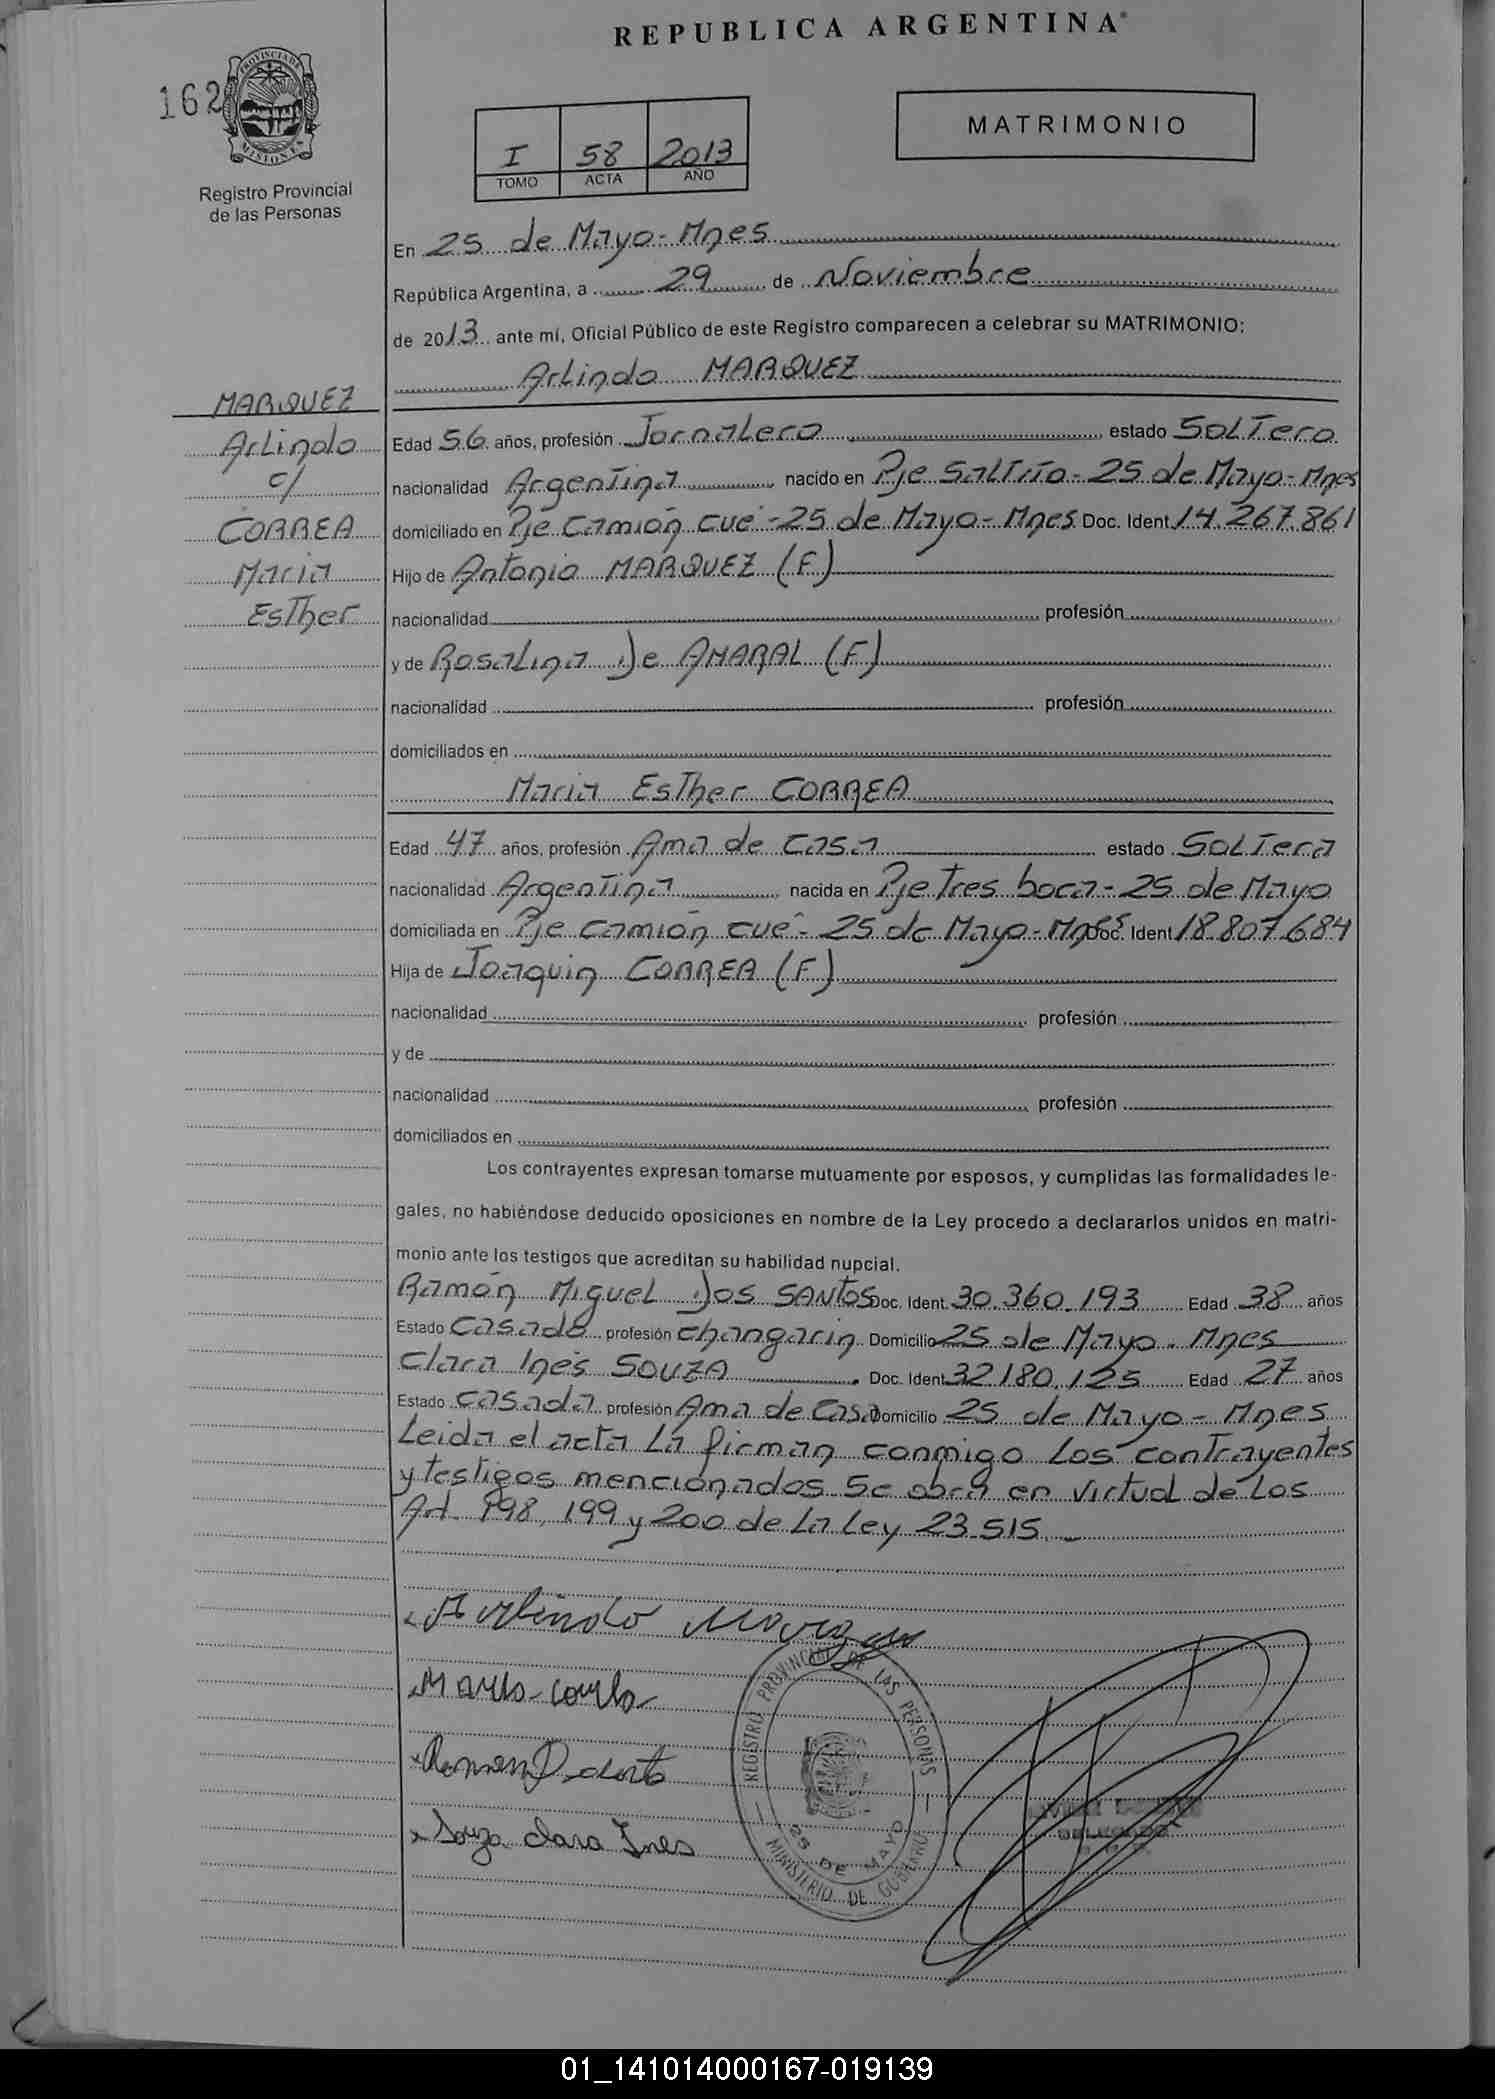 REPUBLICA ARGENTINA
162
PROVINCIA DE
MISIONES
Registro Provincial
de las Personas
I 58 2013
TOMO ACTA AÑO
MATRIMONIO
En 25 de Mayo - Mnes
República Argentina, a 29 de Noviembre
de 2013 ante mí, Oficial Público de este Registro comparecen a celebrar su MATRIMONIO:
Arlindo MARQUEZ
MARQUEZ
Arlindo
c/
CORREA
Maria
Esther
Edad 56 años, profesión Jornalero estado Soltero
nacionalidad Argentina nacido en Pje Saltito - 25 de Mayo - Mnes
domiciliado en Pje Camión cué - 25 de Mayo - Mnes Doc. Ident. 14.267.861
Hijo de Antonio MARQUEZ (F)
nacionalidad profesión
y de Rosalina De AMARAL (F)
nacionalidad profesión
domiciliados en
Maria Esther CORREA
Edad 47 años, profesión Ama de Casa estado Soltera
nacionalidad Argentina nacida en Pje tres boca - 25 de Mayo
domiciliada en Pje Camión cué - 25 de Mayo - Mnes Doc. Ident. 18.807.684
Hija de Joaquin CORREA (F)
nacionalidad profesión
y de
nacionalidad profesión
domiciliados en
Los contrayentes expresan tomarse mutuamente por esposos, y cumplidas las formalidades le-
gales, no habiéndose deducido oposiciones en nombre de la Ley procedo a declararlos unidos en matri-
monio ante los testigos que acreditan su habilidad nupcial.
Ramón Miguel Dos SANTOS Doc. Ident. 30.360.193 Edad 38 años
Estado Casado profesión changarin Domicilio 25 de Mayo - Mnes
Clara Inés SOUZA Doc. Ident. 32.180.125 Edad 27 años
Estado Casada profesión Ama de Casa Domicilio 25 de Mayo - Mnes
Leida el acta la firman conmigo los contrayentes
y testigos mencionados se obra en virtud de los
Art. 198, 199 y 200 de la ley 23.515.-
Arlindo Marquez
REGISTRO PROVINCIAL DE LAS PERSONAS
25 DE MAYO
MINISTERIO DE GOBIERNO
DELEGADO
x Souza Clara Ines
01_141014000167-019139